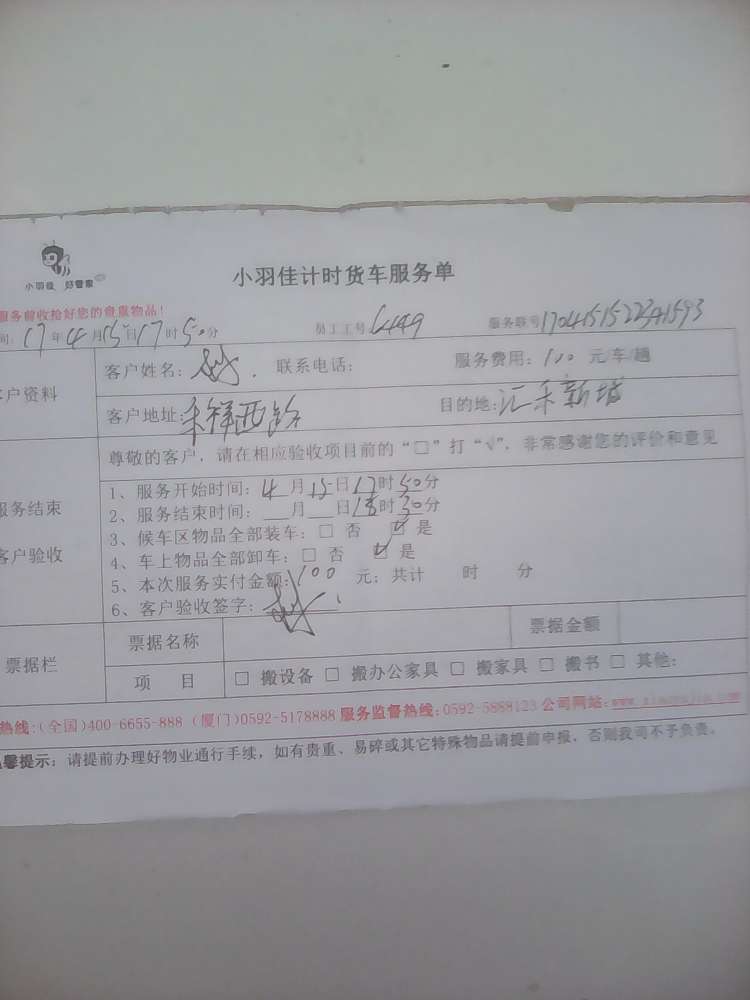 小羽佳 好管家
小羽佳计时货车服务单
服务前收拾好您的贵重物品!
间: 17年4月15日17时50分 员工工号 6449 服务联号 1704151522341593
客户资料 客户姓名: 联系电话: 服务费用: 100 元/车/趟
客户地址: 禾祥西路 目的地: 汇禾新城
尊敬的客户, 请在相应验收项目前的“□”打“√”, 非常感谢您的评价和意见
服务结束
客户验收
1、服务开始时间: 4月15日17时50分
2、服务结束时间: 月 日18时30分
3、候车区物品全部装车: □ 否 ☑ 是
4、车上物品全部卸车: □ 否 ☑ 是
5、本次服务实付金额: 100 元; 共计 时 分
6、客户验收签字:
票据栏 票据名称 票据金额
项 目 □ 搬设备 □ 搬办公家具 □ 搬家具 □ 搬书 □ 其他:
热线:(全国)400-6655-888 (厦门)0592-5178888 服务监督热线:0592-5888123 公司网站:
温馨提示: 请提前办理好物业通行手续, 如有贵重、易碎或其它特殊物品请提前申报, 否则我司不予负责。